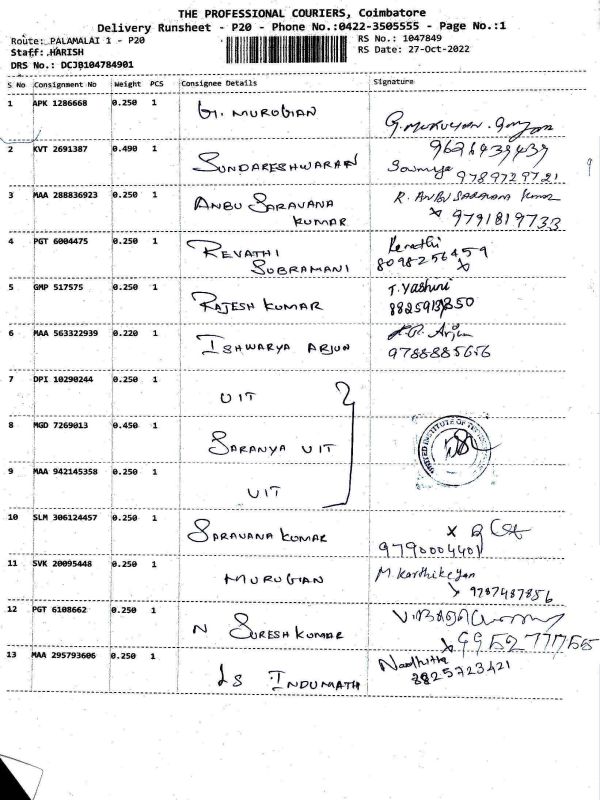 THE PROFESSIONAL COURIERS, Coimbatore
Delivery Runsheet - P20 - Phone No.:0422-3505555 - Page No.:1
Route: PALAMALAI 1 - P20 RS No.: 1047849
Staff: HARISH RS Date: 27-Oct-2022
DRS No.: DCJB104784901
S No Consignment No Weight PCS Consignee Details Signature
1 APK 1286668 0.250 1 G. MURUGIAN
2 KVT 2691387 0.490 1 SUNDARESHWARAN 9626439439
Sowmya 9789729721
3 MAA 288836923 0.250 1 ANBU SARAVANA R. ANBU SARAVANA Kumar
KUMAR x 9791819733
4 PGT 6004475 0.250 1 REVATHI Revathi
SUBRAMANI 8098256459
x
5 GMP 517575 0.250 1 RAJESH KUMAR T. Yashini
6 MAA 563322939 0.220 1 ISHWARYA ARJUN Arjun
9788885656
7 DPI 10290244 0.250 1 UIT
8 MGD 7269013 0.450 1 SARANYA UIT UNITED INSTITUTE OF TECHNOLOGY
9 MAA 942145358 0.250 1 UIT
10 SLM 306124457 0.250 1 SARAVANA KUMAR x
9790004401
11 SVK 20095448 0.250 1 MURUGIAN M. Karthikeyan
9787487856
12 PGT 6108662 0.250 1 N SURESH KUMAR
x 9952777755
13 MAA 295793606 0.250 1 LS INDUMATH
8825723421